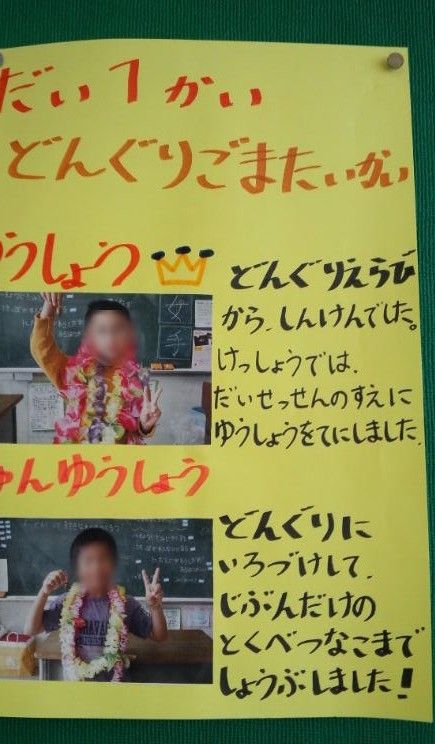 だい1かい
どんぐりごまたいかい
ゆうしょう
どんぐりえらび
から、しんけんでした。
けっしょうでは、
だいせっせんのすえに
ゆうしょうをてにしました。
女
子
ゅんゆうしょう
どんぐりに
いろづけして、
じぶんだけの
とくべつなこまで
しょうぶしました!